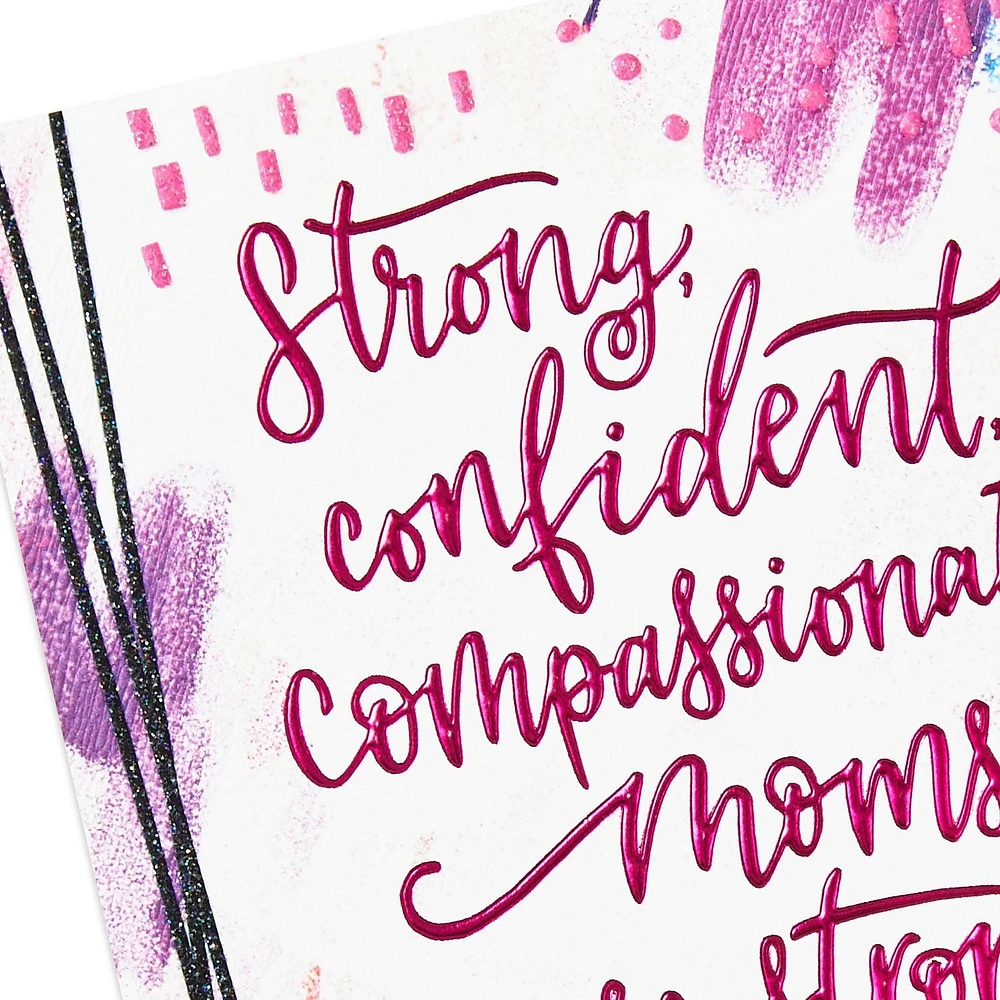 Strong,
confident,
compassionat
moms
stron